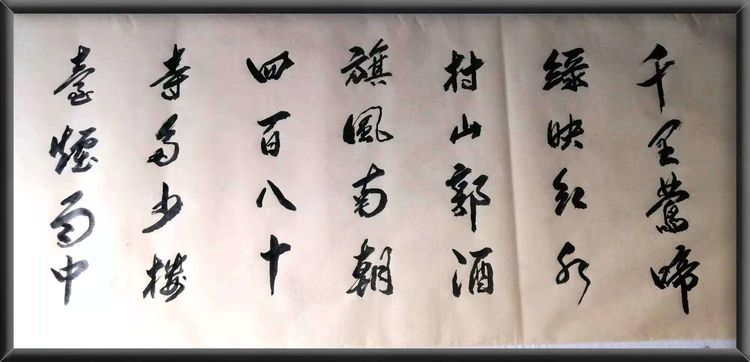 千里鶯啼
綠映紅水
村山郭酒
旗風南朝
四百八十
寺多少樓
臺煙雨中